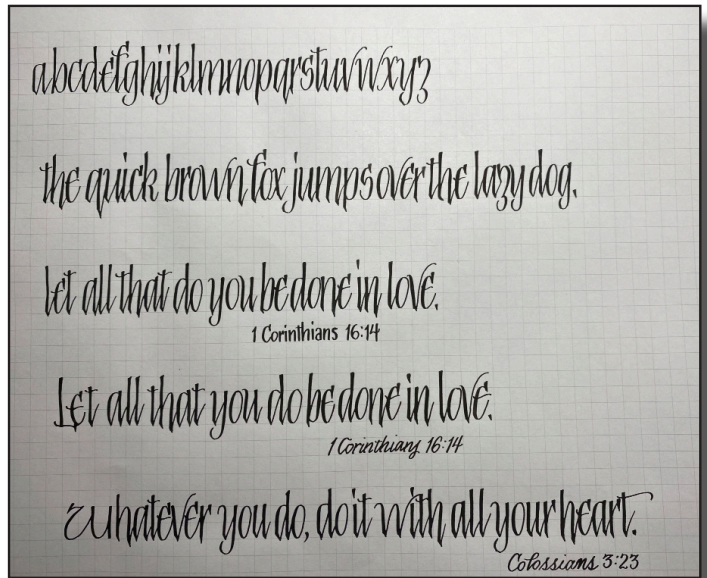 abcdefghijklmnopqrstuvwxyz
the quick brown fox jumps over the lazy dog.
let all that do you be done in love.
1 Corinthians 16:14
Let all that you do be done in love.
1 Corinthians 16:14
Whatever you do, do it with all your heart.
Colossians 3:23